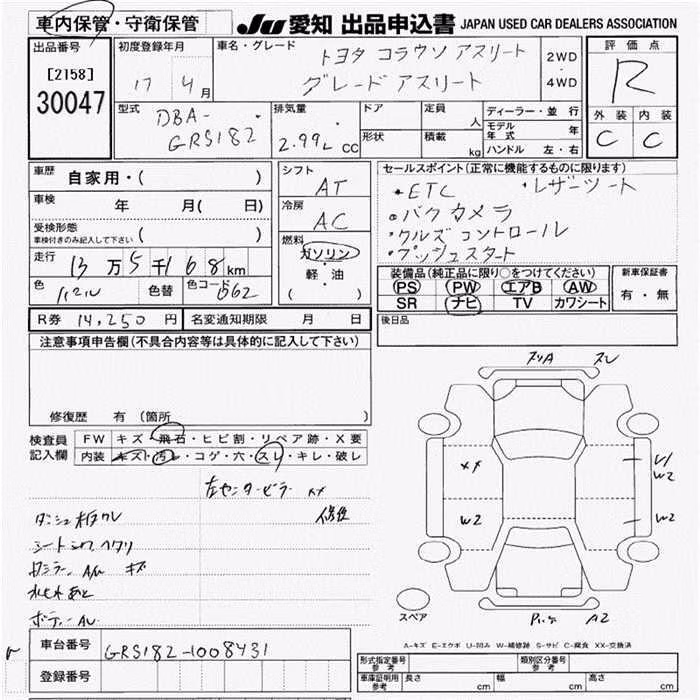 車内保管・守衛保管
JU 愛知 出品申込書 JAPAN USED CAR DEALERS ASSOCIATION
出品番号
[2158]
30047
初度登録年月
17 4月
車名・グレード
トヨタ クラウン アスリート
グレード アスリート
2WD
・
4WD
評価点
R
外装 内装
C C
型式
DBA-
GRS182
排気量
2.99L cc
ドア
形状
定員
人
積載
kg
ディーラー・並行
モデル年式 年
ハンドル 左・右
車歴 自家用・( )
車検 年 月( 日)
受検形態
車検付きのみ記入して下さい ( )
走行 13万5千168km
色 パール 色替 色コード 062
シフト
AT
冷房
AC
燃料
ガソリン
・
軽・油
( )
セールスポイント(正常に機能するものに限ります)
・ETC ・レザーシート
・バクカメラ
・クルズコントロール
・プッシュスタート
装備品(純正品に限り○をつけてください)
PS PW エアB AW
SR ナビ TV カワシート
新車保証書
有・無
R券 14,250 円 名変通知期限 月 日
後日品
注意事項申告欄(不具合内容等は具体的に記入して下さい)
修復歴 有(箇所 )
検査員記入欄
FW キズ・飛石・ヒビ割・リペア跡・X要
内装 キズ・汚レ・コゲ・穴・スレ・キレ・破レ
左センターピラー XX
修復
シートシワ ヘタリ
キズ
スリA スレ
XX
W2
W2
W2
A2
スペア
A-キズ E-エクボ U-凹み W-補修跡 S-サビ C-腐食 XX-交換済
車台番号 GRS182-1008431
登録番号
形式指定番号 参考
類別区分番号 参考
車庫証明用 参考 長さ cm 幅 cm 高さ cm